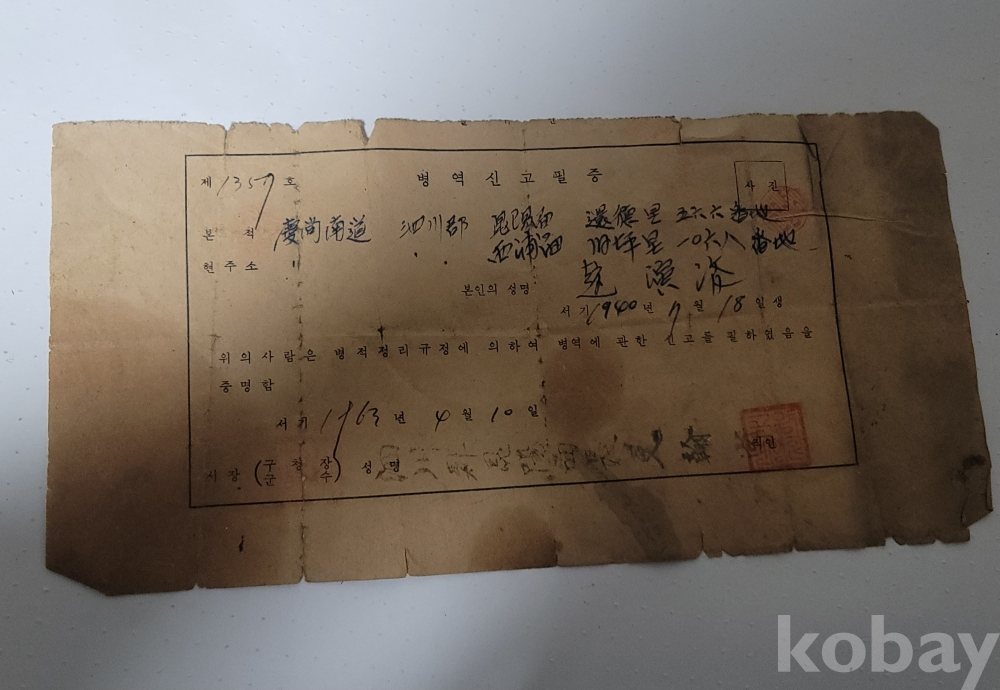 제 1357 호 병역신고필증
사진
본적 慶尚南道 泗川郡 昆陽面 還德里 五六六番地
현주소 〃 〃 西浦面 旧坪里 一〇六八番地
본인의 성명 濟
서기 1940 년 7 월 18 일생
위의 사람은 병적정리규정에 의하여 병역에 관한 신고를 필하였음을
증명함
서기 1963 년 4 월 10 일
시장 (구청장 군수) 성명 泗川郡昆陽面長 직인
kobay